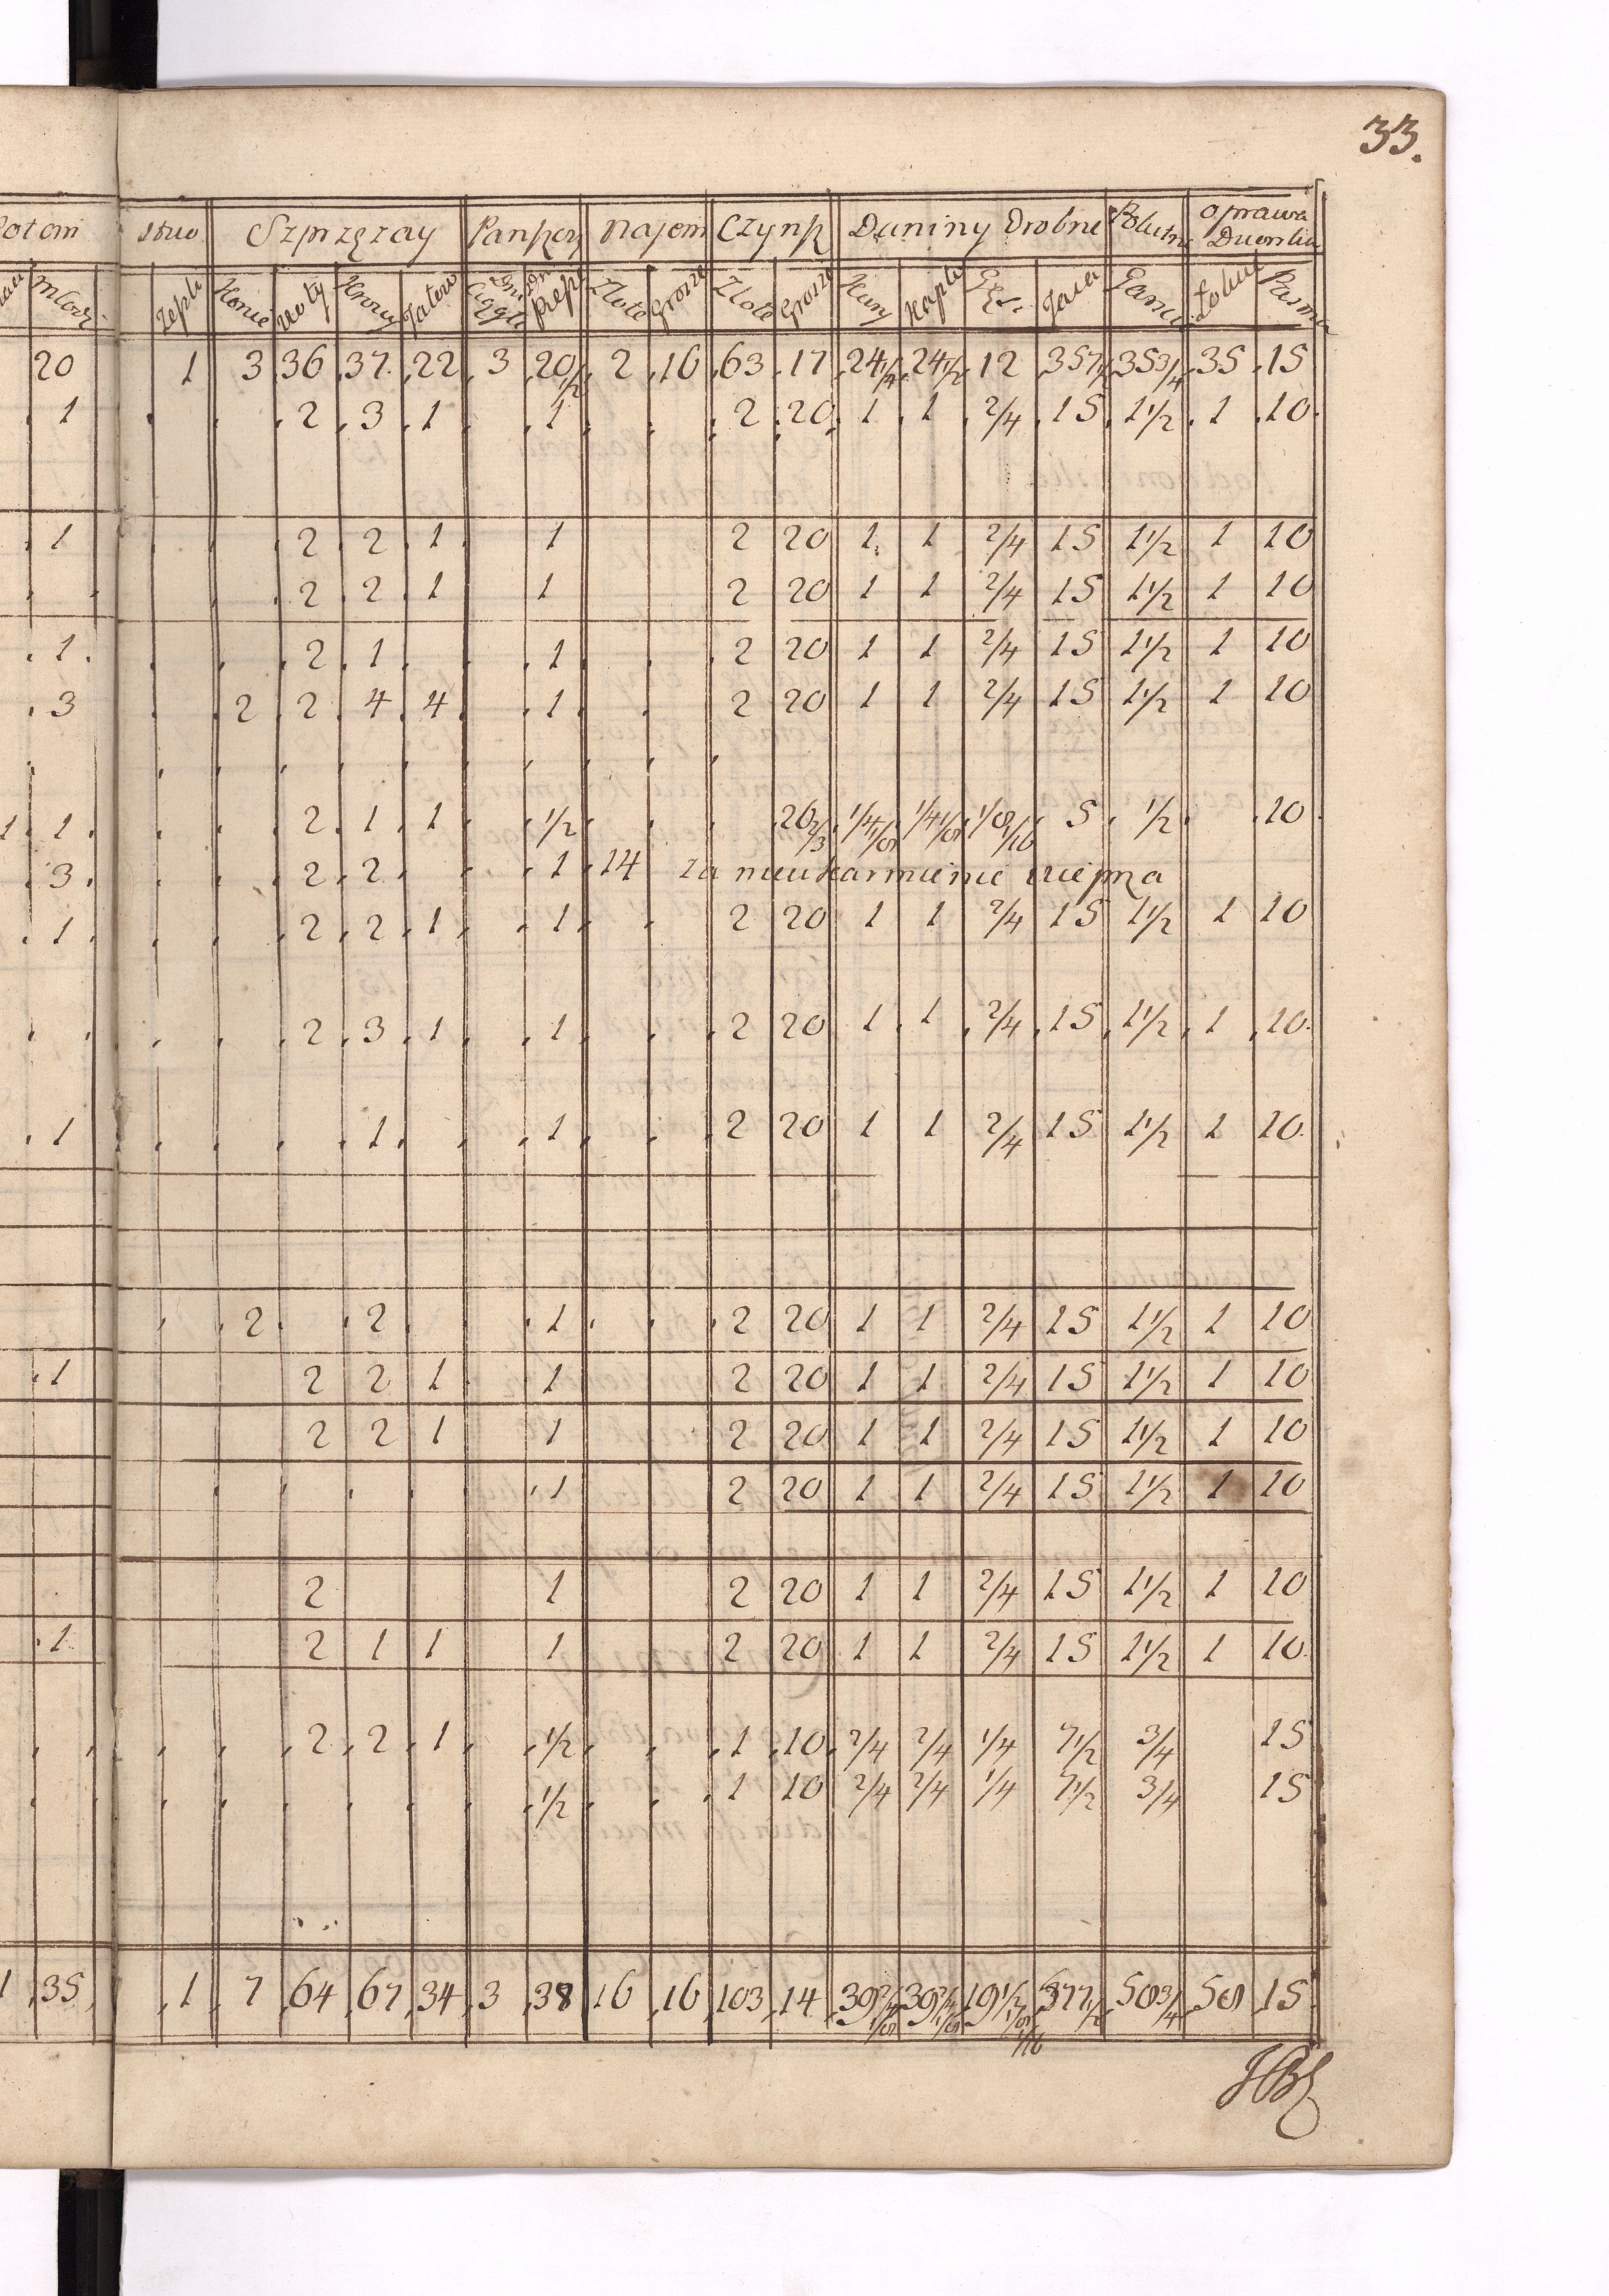 33.
otem stwo Szprzęzay Panszcz Najem Czynsz Daniny Drobne oprawa
Młodz Konie Woły Krowy Ciągłe Piesze Złote Grosze Złote Grosze Kury Kapło Gęsi Jaia Pasma
20 1 3 36 37 22 3 20 1/2 2 16 63 17 24 1/4 24 1/2 12 357 1/2 35 3/4 35 15
1 2 3 1 1 2 20 1 1 2/4 15 1 1/2 1 10
1 2 2 1 1 2 20 1 1 2/4 15 1 1/2 1 10
2 2 1 1 2 20 1 1 2/4 15 1 1/2 1 10
1 2 1 1 2 20 1 1 2/4 15 1 1/2 1 10
3 2 2 4 4 1 2 20 1 1 2/4 15 1 1/2 1 10
1 1 2 1 1 1/2 26 2/3 1/4 1/8 1/4 1/8 1/8 1/16 5 1/2 10
3 2 2 1 14 za nieukarmienie wieprza
1 2 2 1 1 2 20 1 1 2/4 15 1 1/2 1 10
2 3 1 1 2 20 1 1 2/4 15 1 1/2 1 10
1 1 1 2 20 1 1 2/4 15 1 1/2 1 10
2 2 1 2 20 1 1 2/4 15 1 1/2 1 10
1 2 2 1 1 2 20 1 1 2/4 15 1 1/2 1 10
2 2 1 1 2 20 1 1 2/4 15 1 1/2 1 10
1 2 20 1 1 2/4 15 1 1/2 1 10
2 1 2 20 1 1 2/4 15 1 1/2 1 10
1 2 1 1 1 2 20 1 1 2/4 15 1 1/2 1 10
2 2 1 1/2 1 10 2/4 2/4 1/4 7 1/2 3/4 15
1/2 1 10 2/4 2/4 1/4 7 1/2 3/4 15
1 35 1 7 64 67 34 3 38 16 16 103 14 39 2/4 1/8 39 2/4 1/8 19 1/2 1/8 1/16 577 1/2 58 3/4 50 15